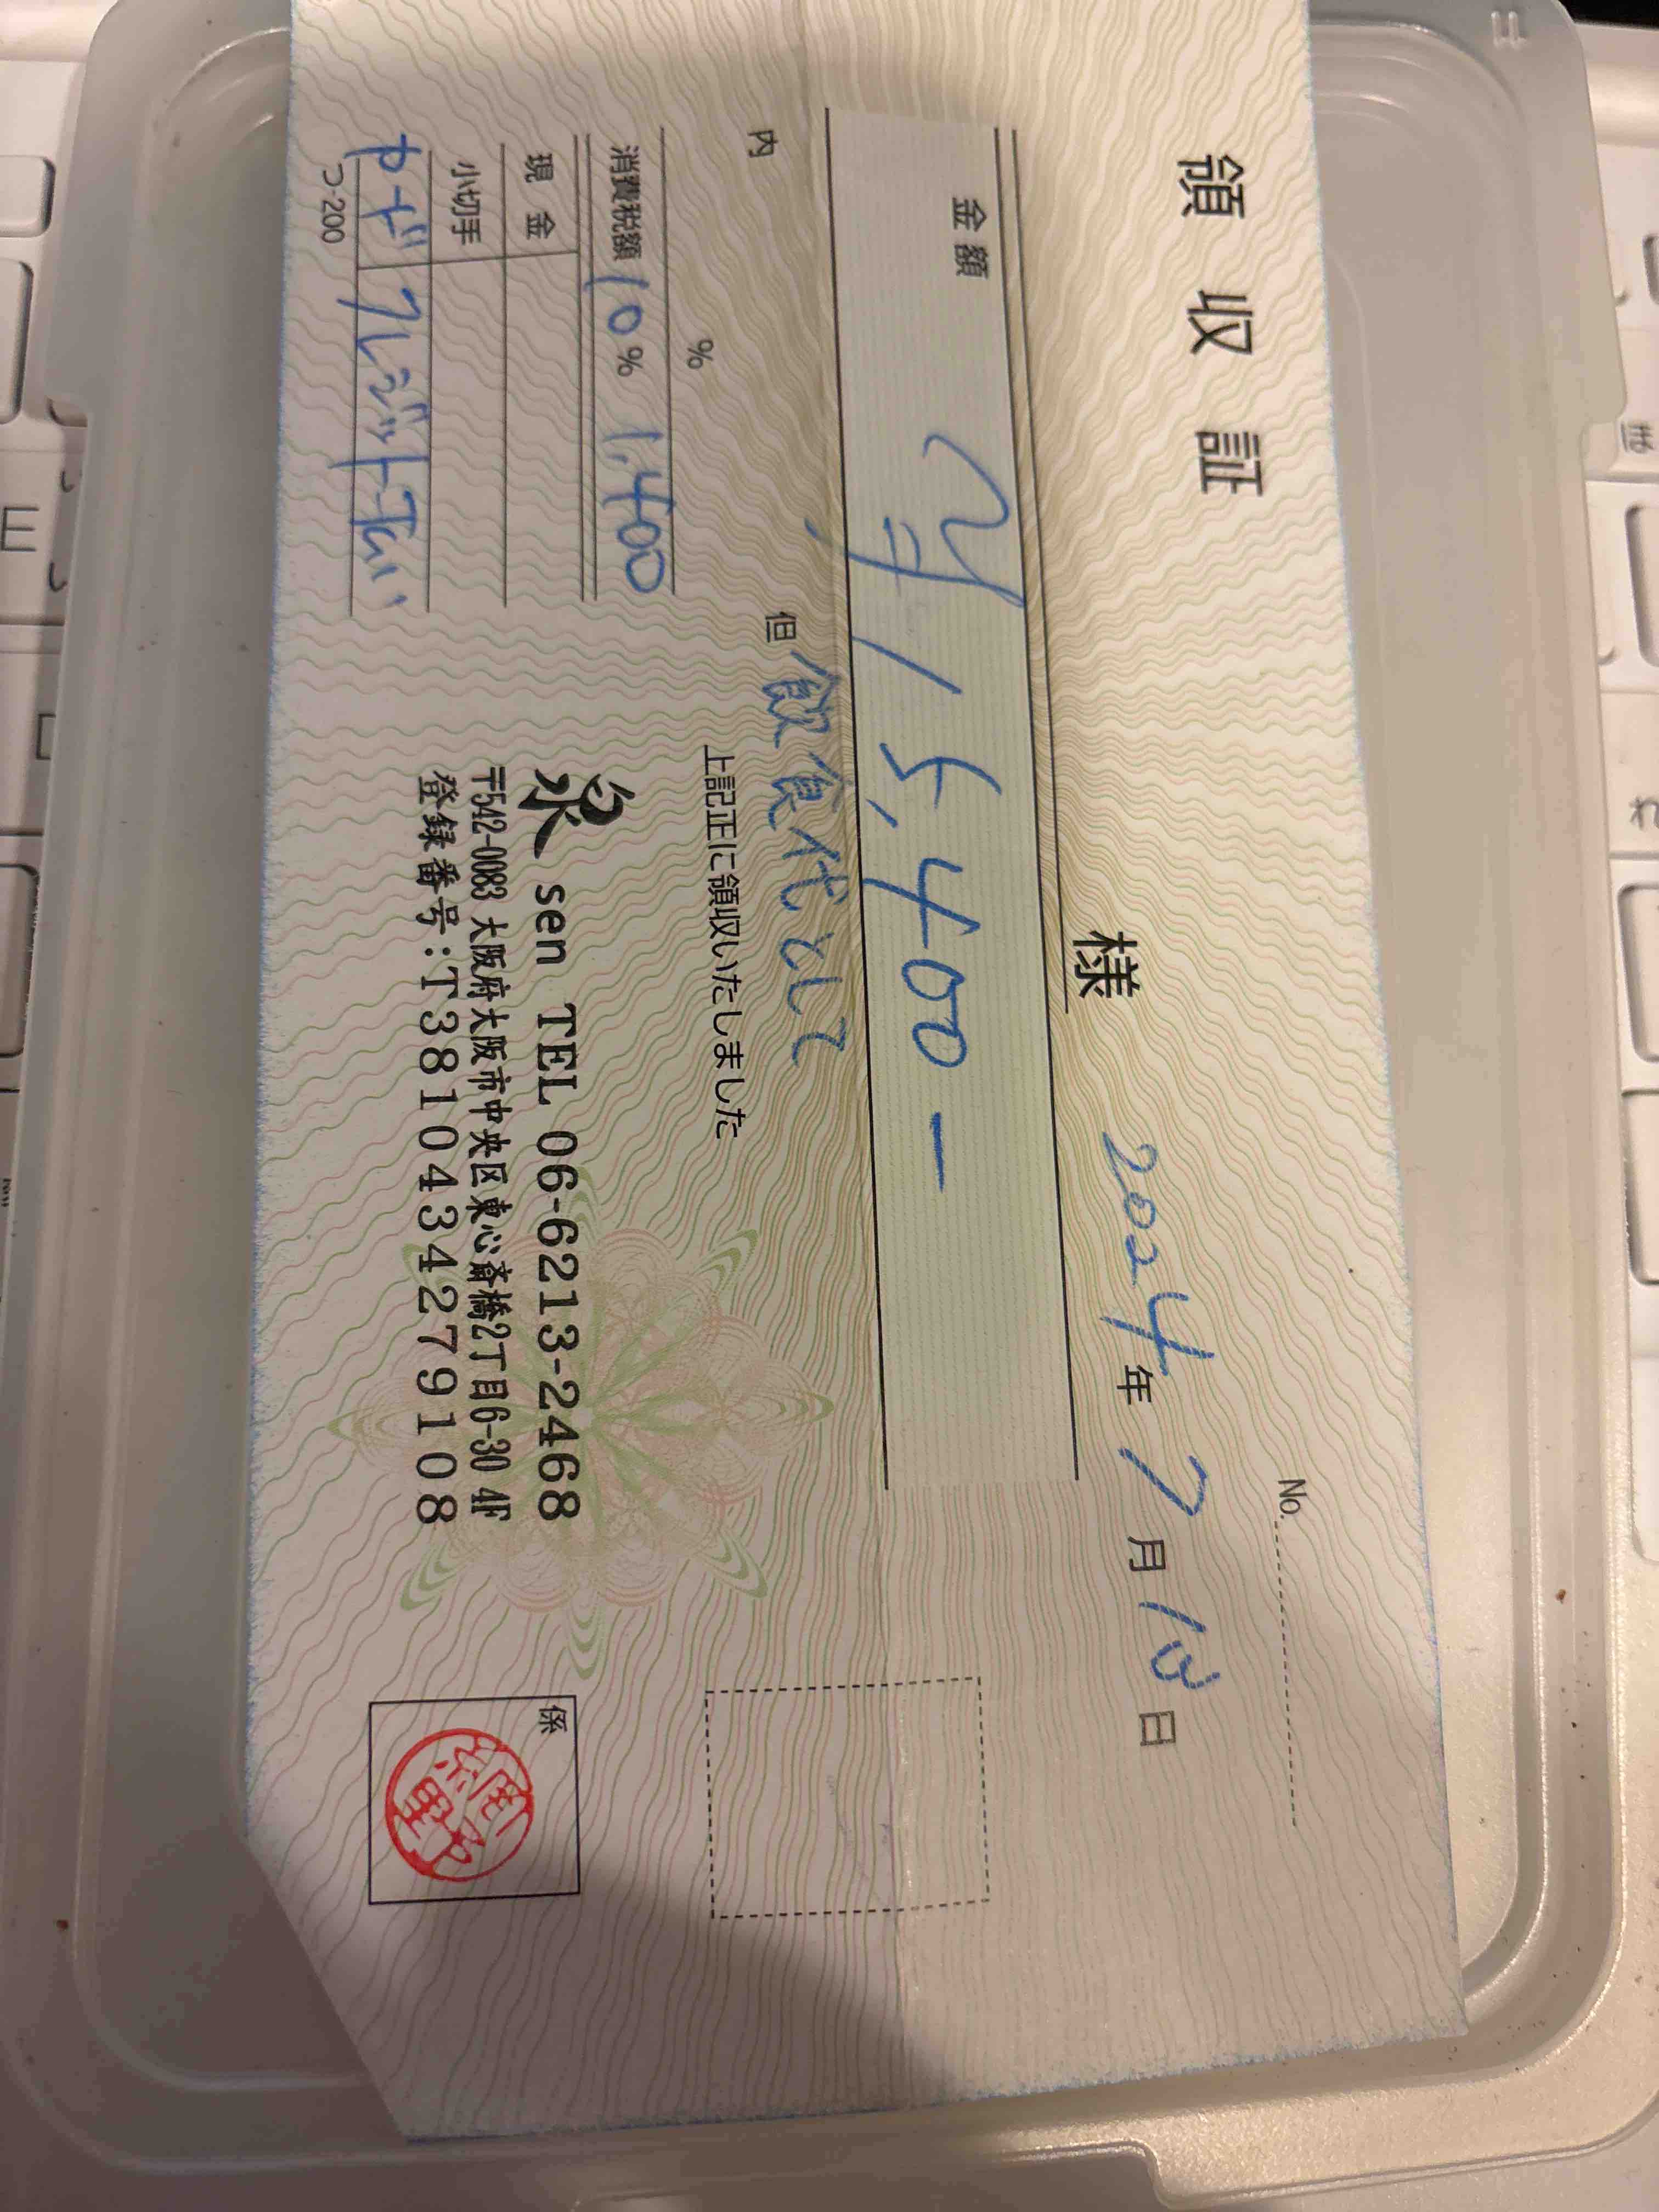 領収証
No.
様
2024年7月13日
金額 ¥15,400-
但 飲食代として
上記正に領収いたしました
内
%
消費税額 10% 1,400
現金
小切手
カード クレジット払い
つ-200
泉 sen TEL 06-6213-2468
〒542-0083 大阪府大阪市中央区東心斎橋2丁目6-30 4F
登録番号:T3810434279108
係
網野